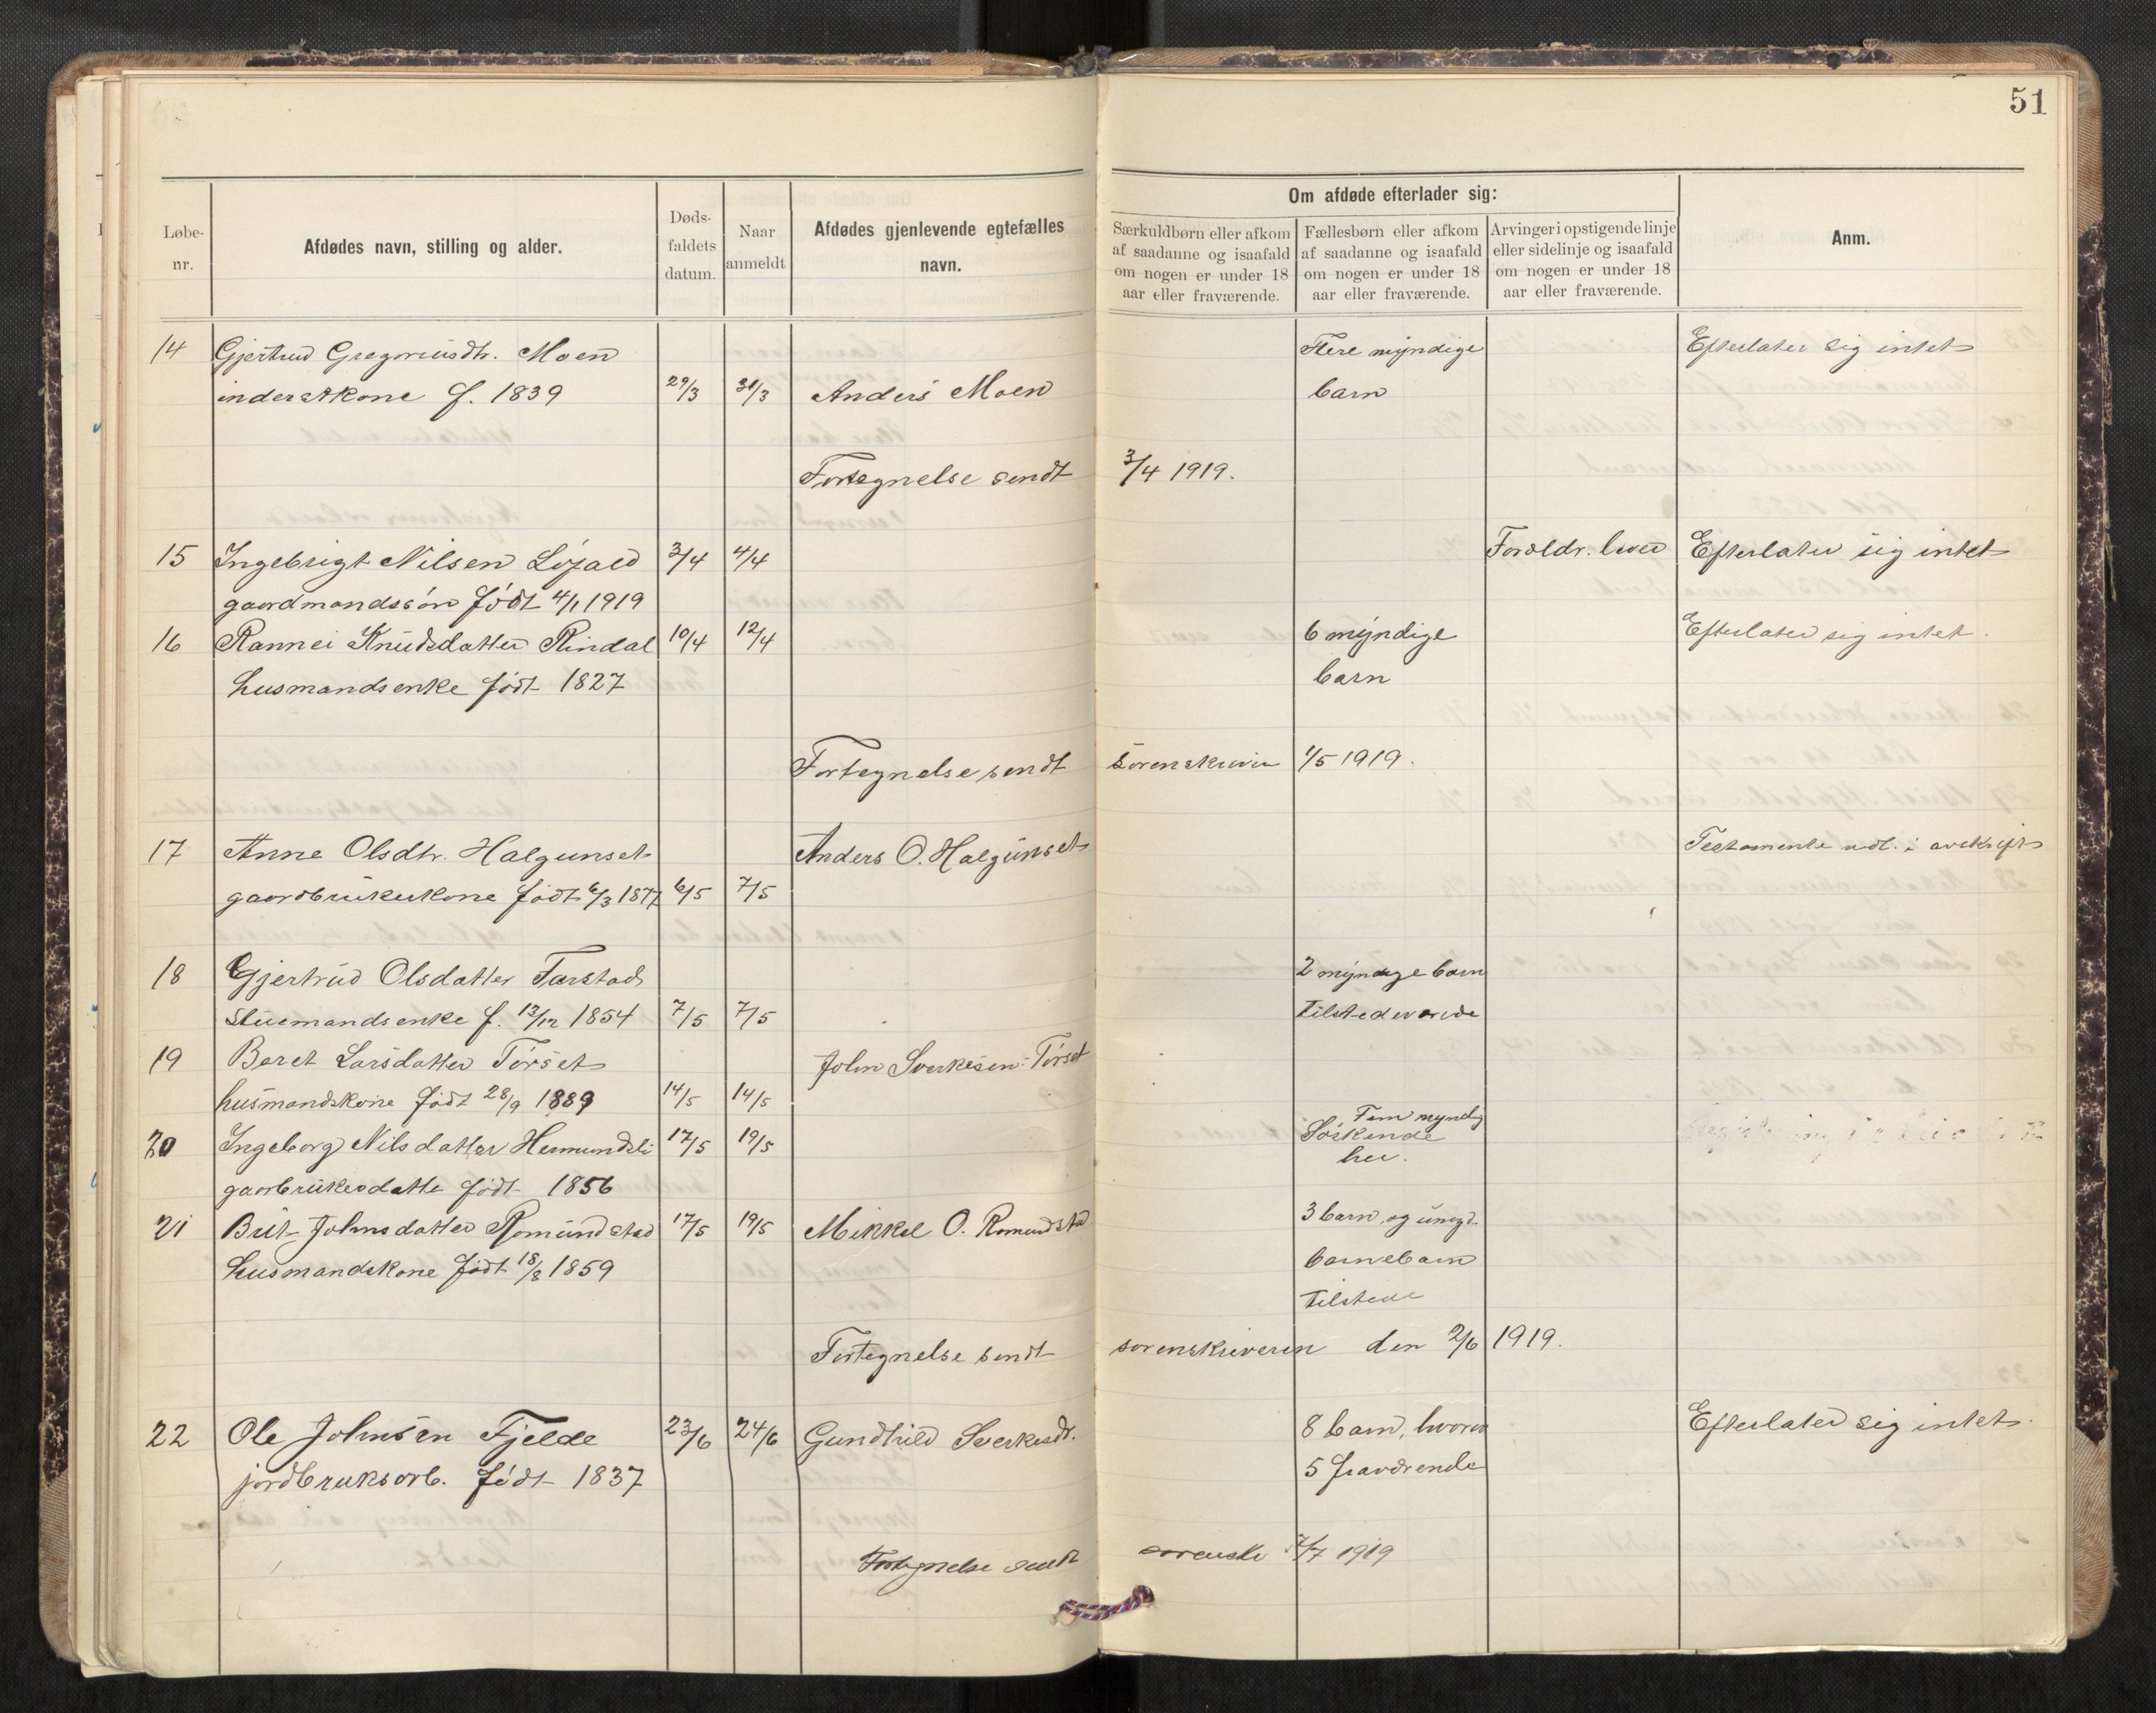 51
Løbe-
nr.
Afdødes navn, stilling og alder.
Døds-
faldets
datum.
Naar
anmeldt
Afdødes gjenlevende egtefælles
navn.
Om afdøde efterlader sig:
Særkuldbørn eller afkom
af saadanne og isaafald
om nogen er under 18
aar eller fraværende.
Fællesbørn eller afkom
af saadanne og isaafald
om nogen er under 18
aar eller fraværende.
Arvinger i opstigende linje
eller sidelinje og isaafald
om nogen er under 18
aar eller fraværende.
Anm.
14 Gjertrud Gregoriusdtr. Moen Flere myndige Efterlater sig intet
inderstkone f. 1839 29/3 31/3 Anders Moen barn
Fortegnelse sendt 3/4 1919.
15 Ingebrigt Nilsen Løfald 3/4 4/4 Foreldr. lever Efterlater sig intet
gaardmandssøn født 4/1 1919
16 Rannei Knudsdatter Rindal 10/4 12/4 6 myndige Efterlater sig intet.
husmandsenke født 1827 barn
Fortegnelse sendt sorenskriver 1/5 1919.
17 Anne Olsdtr. Halgunset Anders O. Halgunset Testamente udl. i avskrift
gaardbrukerkone født 6/3 1877 6/5 7/5
18 Gjertrud Olsdatter Tarstad 2 myndige barn
Stuemandsenke f. 13/12 1854 7/5 7/5 tilstedeværende
19 Beret Larsdatter Tørset John Sverkesen Tørset
husmandskone født 28/9 1889 14/5 14/5
20 Ingeborg Nilsdatter Hermundsli 17/5 19/5 Fem myndig
Søskende
her.
gaarbrukerdatte født 1856
21 Brit Johnsdatter Romundstad 17/5 19/5 Mikkel O. Romundstad 3 barn og umyd.
husmandskone født 18/8 1859 barnebarn
tilstede
Fortegnelse sendt sorenskriveren den 2/6 1919.
22 Ole Johnsen Fjelde 23/6 24/6 Gundhild Sverkesdr. 8 barn, hvorav Efterlater sig intet.
jordbruksarb. født 1837 5 fraværende
Fortegnelse sendt sorenskr 2/7 1919